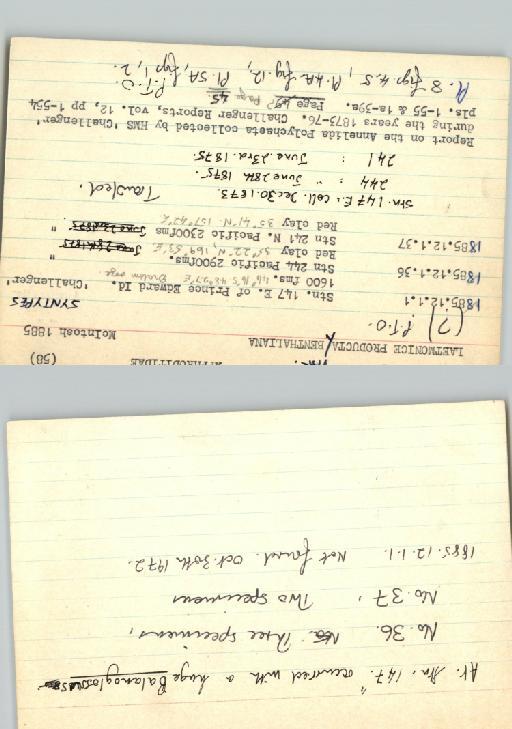 (58)
LAETMONICE PRODUCTA VAR. BENTHALIANA
McIntosh 1885
(?) P.T.O.
SYNTYPES
1885.12.1.1 Stn. 147 E. of Prince Edward Id. 'Challenger'
1600 fms. 46° 16' S, 48° 27' E
1885.12.1.36 Stn 244 Pacific 2900fms. "
Red clay 35° 22' N, 169° 53' E June 28th 1875
1885.12.1.37 Stn 241 N. Pacific 2300fms "
Red clay 35° 41' N, 157° 42' E June 23rd 1875
Stn. 147 E: coll. Dec 30. 1873.
244 : " June 28th 1875. Trawled.
241 : June 23rd. 1875.
Report on the Annelida Polychaeta collected by HMS 'Challenger'
during the years 1873-76. Challenger Reports, vol. 12, pp 1-554
pls. 1-55 & 1a-39a. Page 49? Page 45
Pl. 8 figs. 4, 5, Pl. 4A fig. 12, Pl. 5A, figs 1, 2.
P.T.O.
At. Stn. 147. "occurred with a huge Balanoglossus"
No. 36. Three specimens,
No. 37, Two specimens
1885.12.1.1. Not found. Oct. 30th 1972.